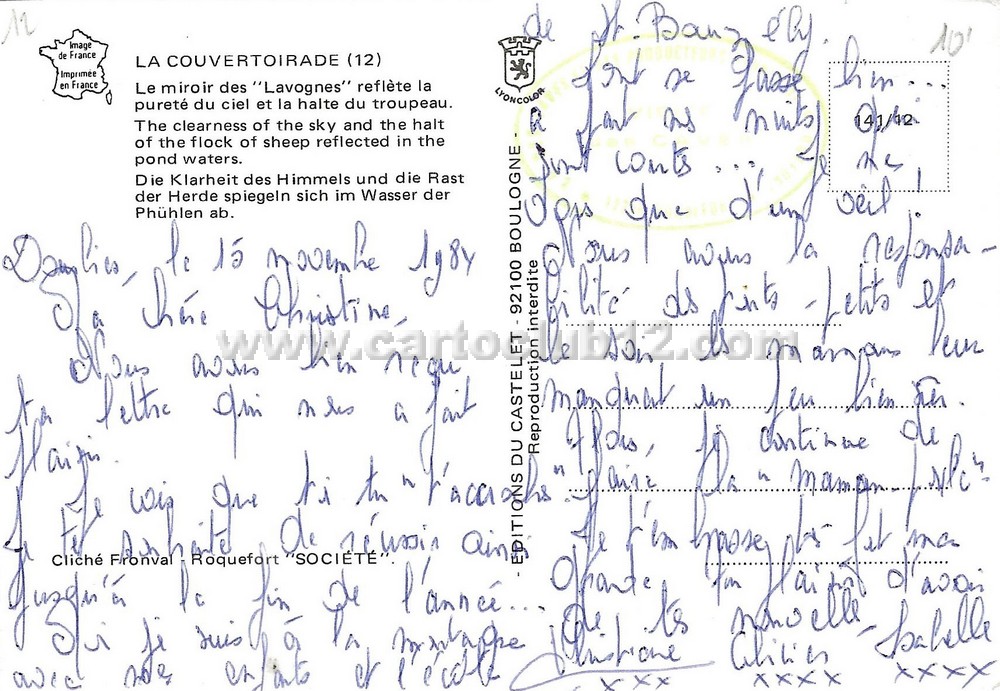 12
Image
de France
Imprimée
en France
LA COUVERTOIRADE (12)
Le miroir des "Lavognes" reflète la
pureté du ciel et la halte du troupeau.
The clearness of the sky and the halt
of the flock of sheep reflected in the
pond waters.
Die Klarheit des Himmels und die Rast
der Herde spiegeln sich im Wasser der
Phühlen ab.
le 15 novembre 1984
Ma chère Christine,
Nous avons bien reçu
ta lettre qui nous a fait
plaisir.
Je vois que si tu "t'accroches"
je te souhaite de réussir ainsi
Cliché Fronval - Roquefort "SOCIÉTÉ".
jusqu'à la fin de l'année...
Ici je suis à la montagne
avec mes enfants et l'école
- EDITIONS DU CASTELET - 92100 BOULOGNE -
Reproduction interdite
LYONCOLOR
10'
141/12
de St. Bauzély.
Tout se passe bien...
à part nos nuits qui
sont courtes..., je ne
dors que d'un oeil!
Nous avons la responsa-
bilité des touts-petits et
le soir les mamans leur
manquent un peu bien sûr.
Alors, je continue de
faire la "maman
Je t'embrasse très fort ma
grande
que tes nouvelles
Christiane Olivier Isabelle
xxx xxxx xxxx
www.cartoclub12.com